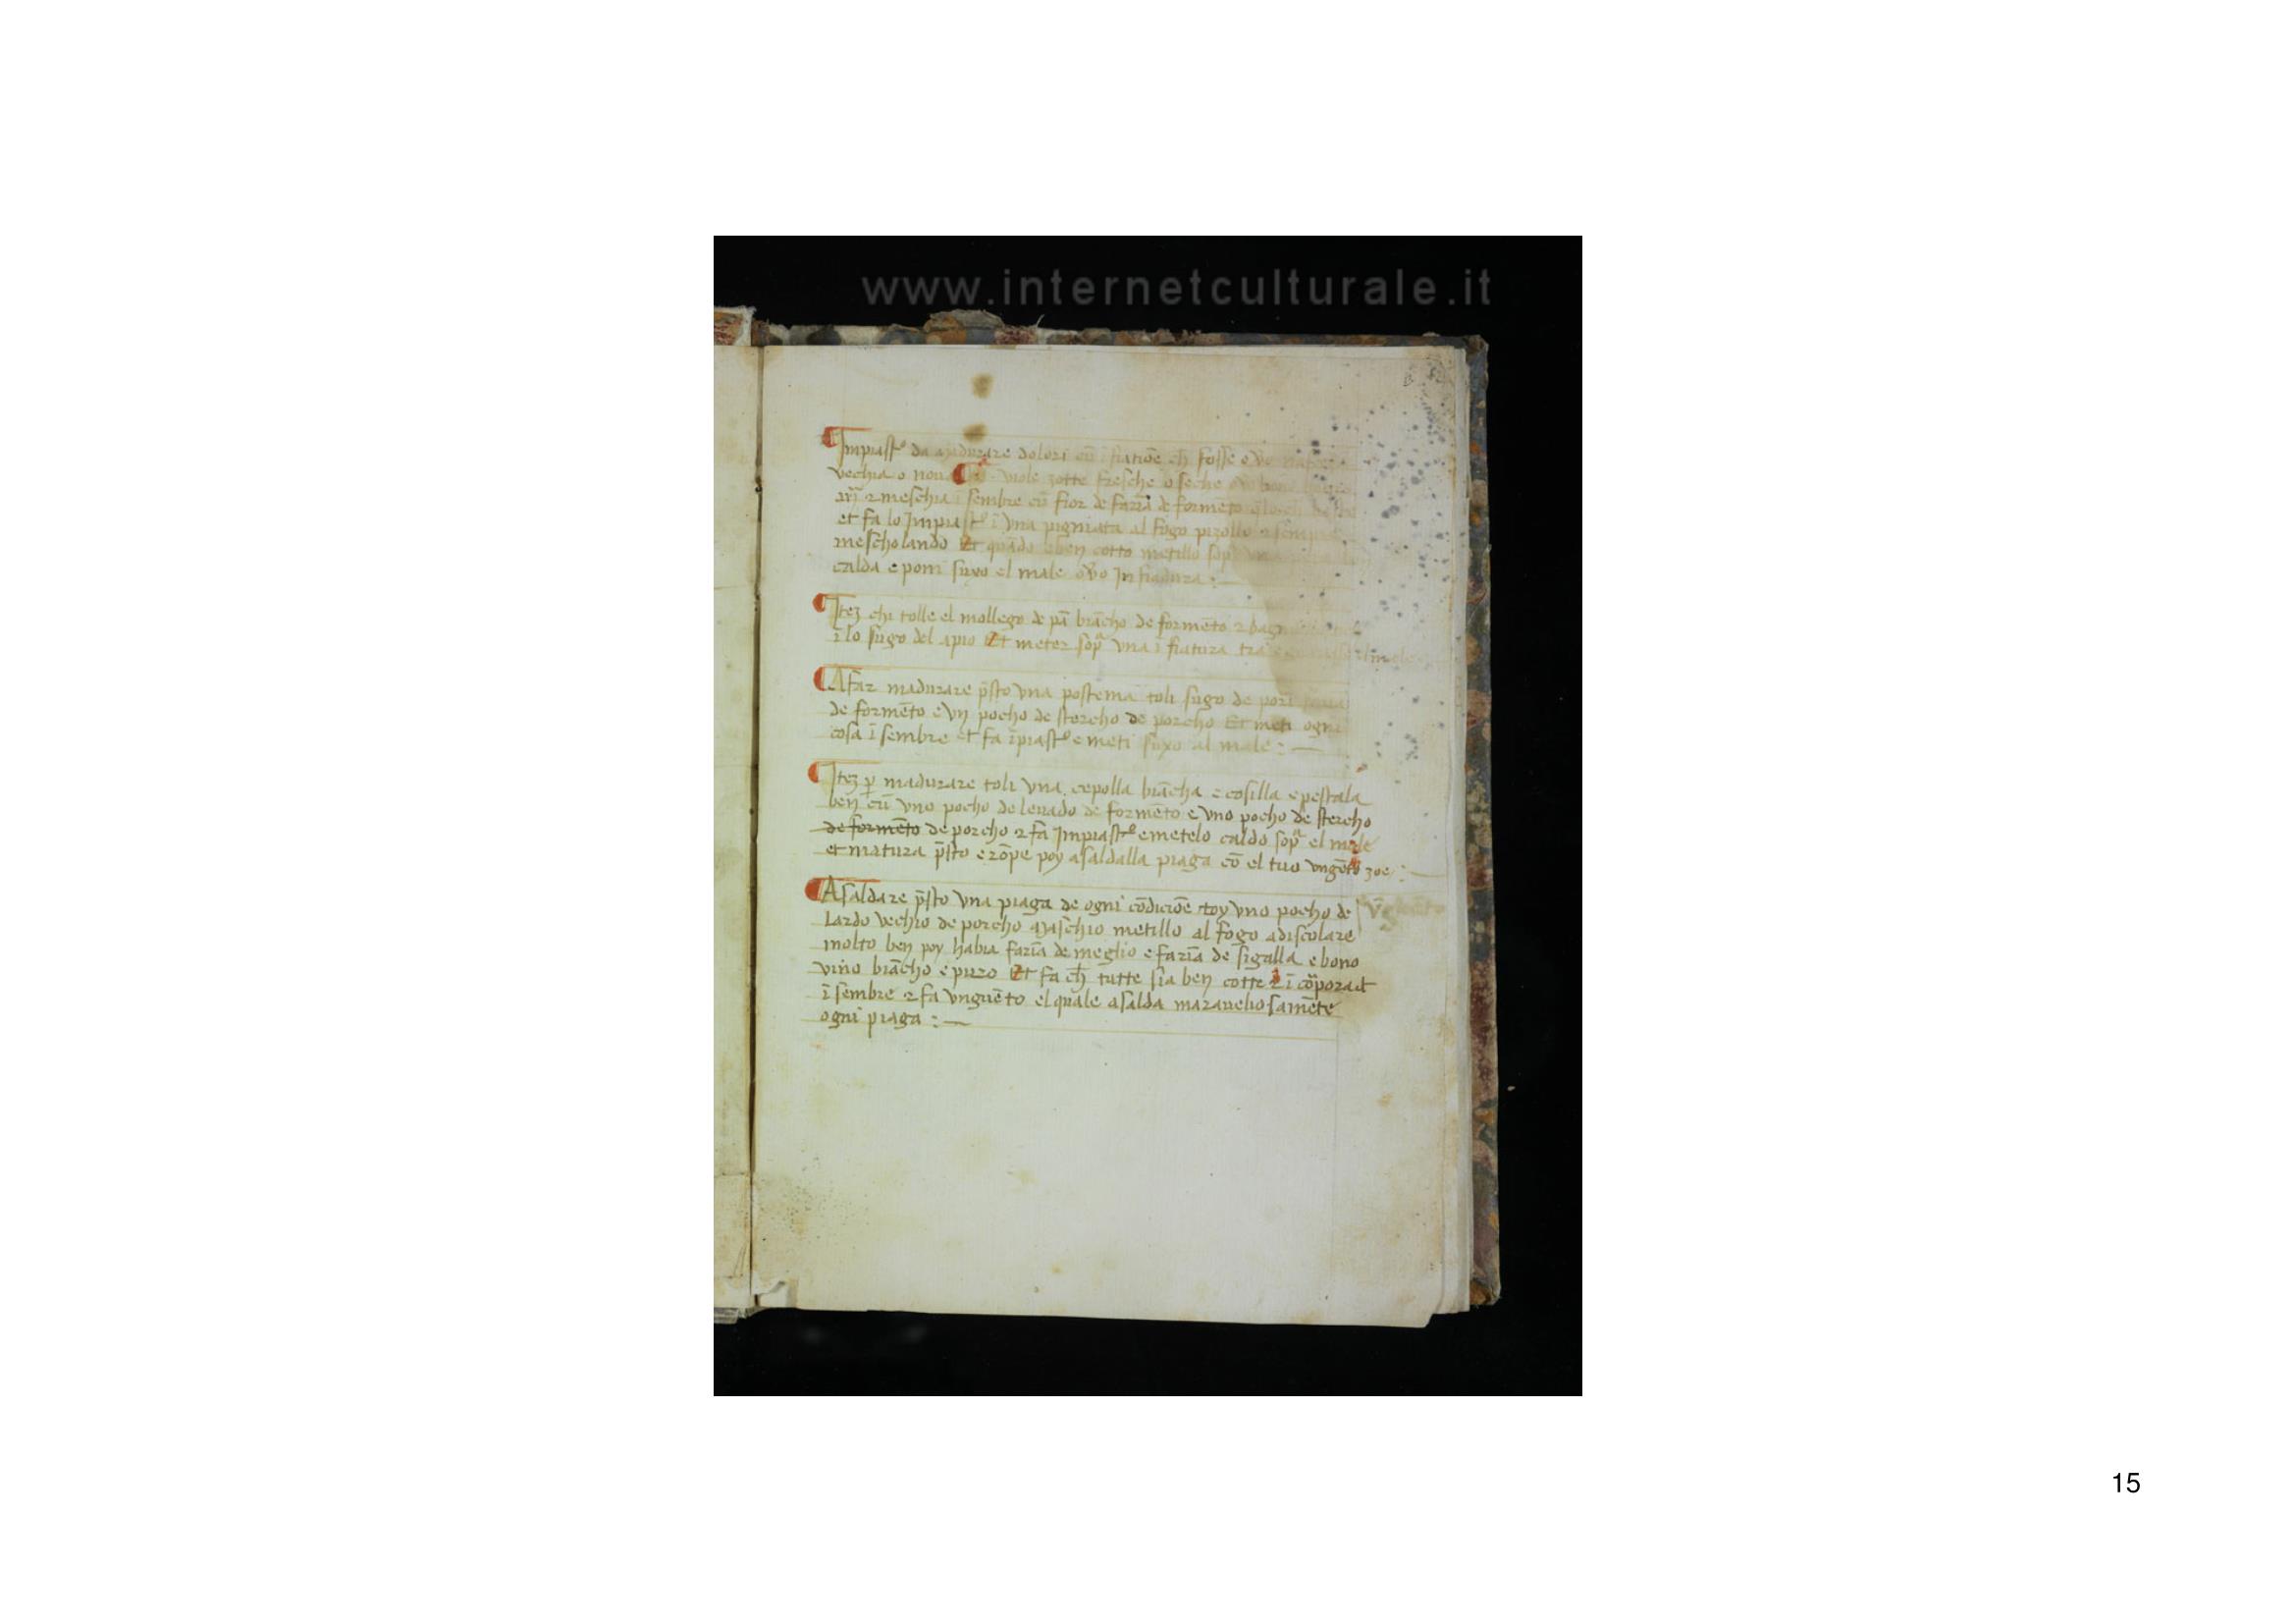 www.internetculturale.it
Impiast° da madurare dolori cū ĩfiatiōe ch̄ fosse oṽo
vechia o noua viole zotte fresche o seche
ꝛ meschia ĩsembre cū fior de farĩa de formēto
et fa lo Impiast° ĩ vna pigniata al fogo pizollo ꝛ sempre
mescholando Et quādo e ben cotto metillo sop̄
calda e poni suxo el male oṽo Infiadura :—
Itez chi tolle el mollego de pā biācho de formēto ꝛ
ĩ lo sugo del apio Et meter sopᵃ vna ĩfiatura
A far madurare p̄sto vna postema toli sugo de pori
de formēto e vn pocho de storcho de porcho Et meti ogni
cosa ĩsembre et fa ĩpiast° e meti suxo al male :—
Itez ꝑ madurare toli vna cepolla biācha e cosilla e pestala
ben cū vno pocho de leuado de formēto e vno pocho de stercho
de formēto de porcho ꝛ fa Impiast° e metelo caldo sopᵃ el male
et matura p̄sto e rōpe poy asaldalla piaga cō el tuo vngēto zoe :—
A saldare p̄sto vna piaga de ogni cōdiciōe toy vno pocho de
Lardo vechio de porcho maschio metillo al fogo a discolare
molto ben poy habia farĩa de meglio e farĩa de sigalla e bono
vino biācho e puro Et fa ch̄ tutte sia ben cotte ꝛ ĩcōporat
ĩsembre ꝛ fa vnguēto el quale asalda maraueliosamēte
ogni piaga :—
15